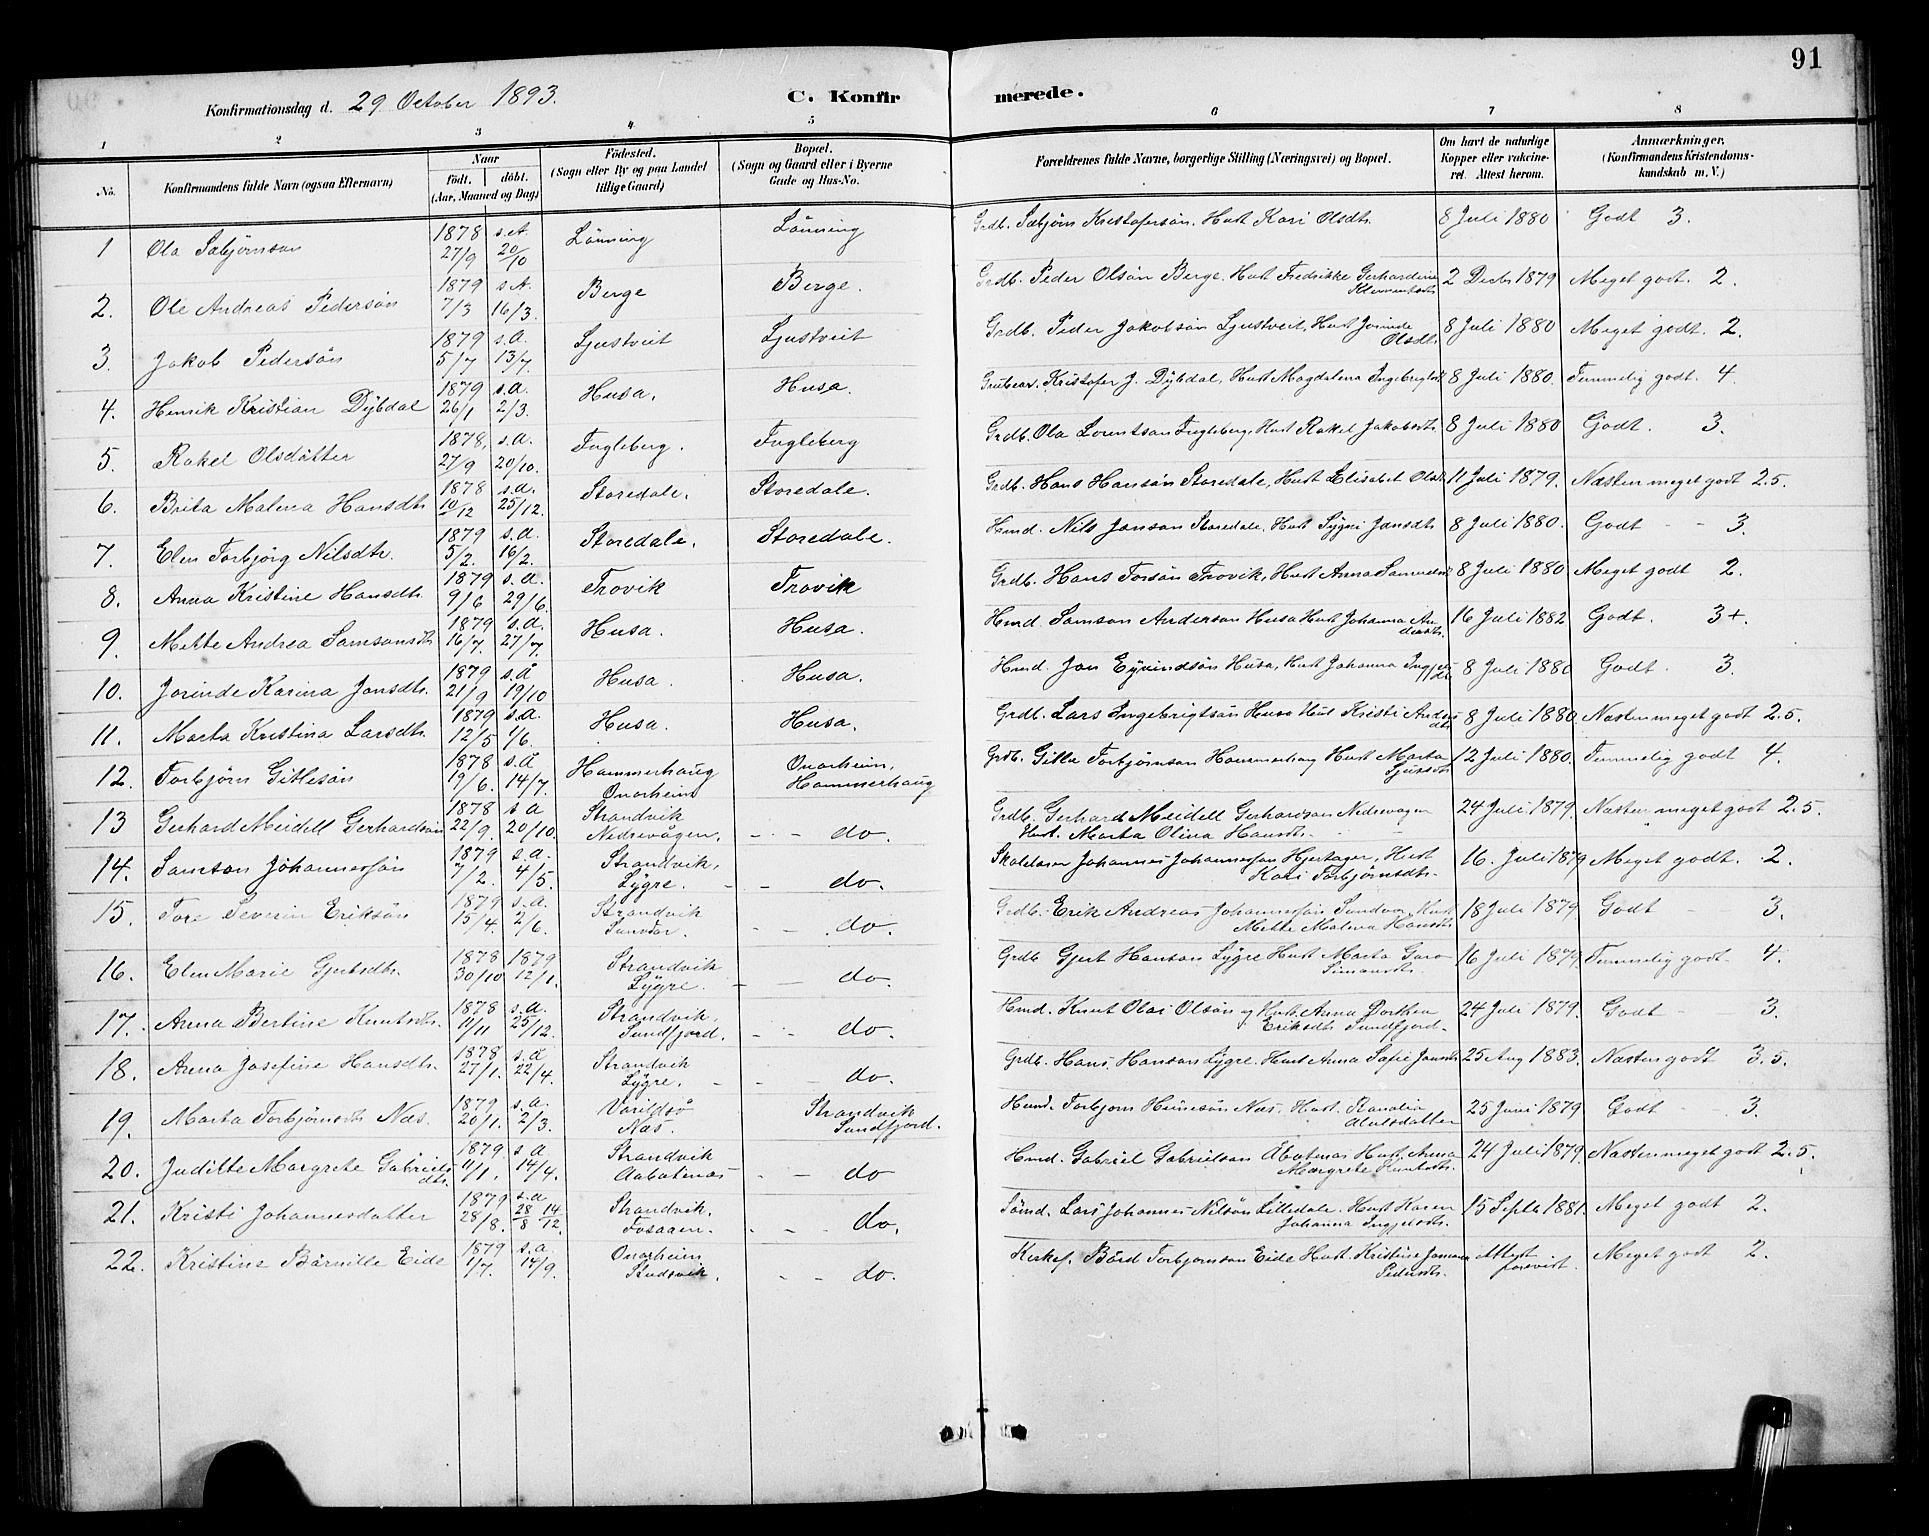 91
Konfirmationsdag d. 29 October 1893. C. Konfirmerede.
1 2 3 4 5 6 7 8
No. Konfirmandens fulde Navn (ogsaa Efternavn) Naar født. døbt. (Aar, Maaned og Dag) Fødested. (Sogn eller By og paa Landet tillige Gaard) Bopæl. (Sogn og Gaard eller i Byerne Gade og Hus-No. Forældrenes fulde Navne, borgerlige Stilling (Næringsvei) og Bopæl. Om havt de naturlige Kopper eller vakcineret. Attest herom. Anmærkninger. (Konfirmandens Kristendomskundskab m. V.)
1 Ola Sæbjørnson 1878 27/9 s.A. 20/10 Lønning Lønning Grdb. Sæbjørn Kristofersøn, Hust Kari Olsdtr. 8 Juli 1880 Godt 3.
2. Ole Andreas Pedersøn 1879 7/3 s.A. 16/3. Berge Berge. Grdb. Peder Olsøn Berge, Hust Fredrikke Gerhardine Klementsdtr 2 Decbr 1879 Meget godt. 2.
3. Jakob Pedersøn 1879 5/7 s.a. 13/7. Ljustveit Ljustveit Grdb. Peder Jakobsøn Ljustveit, Hust Jorinde Olsdtr. 8 Juli 1880 Meget godt. 2.
4. Henrik Kristian Dÿbdal 1879 26/1 s.a. 2/3. Husa. Husa. Kristofer J. Dÿbdal, Hust Magdalena 8 Juli 1880. Temmelig godt. 4.
5. Rakel Olsdatter 1878, 27/9 s.a. 20/10. Fugleberg. Fugleberg Grdb. Ola Lorentsøn Fugleberg, Hust Rakel Jakobsdtr. 8 Juli 1880 Godt. 3.
6. Brita Malena Hansdtr 1878 10/12 s.a. 25/12. Storedale. Storedale. Grdb. Hans Hansøn Storedale, Hust Elisabet Olsdt 11 Juli 1879. Næsten meget godt 2.5.
7. Elen Torbjørg Nilsdtr. 1879 5/2. s.a. 16/2. Storedale. Storedale. Hmd. Nils Jonson Storedale, Hust Sygni Jansdtr 8 Juli 1880. Godt - - 3.
8. Anna Kristine Hansdtr. 1879 9/6 s.a. 29/6. Trovik Trovik Grdb. Hans Torsøn Trovik, Hust Anna Samuelsdt 8 Juli 1880 Meget godt 2.
9. Mette Andrea Samsonsdtr 1879 16/7. s.a. 27/7. Husa. Husa. Hmd. Samson Anderson Husa Hust Johanna Andersdtr. 16 Juli 1882 Godt. 3+.
10. Jorinde Karina Jonsdtr. 1879 21/9 s.a 19/10 Husa. Husa. Hmd. Jon Eyvindsøn Husa, Hust Johanna 8 Juli 1880 Godt. 3.
11. Marta Kristina Larsdtr. 1879 12/5 s.a. 1/6. Husa. Husa. Grdb. Lars Ingebrigtsøn Husa Hust Kristi Andersdtr 8 Juli 1880. Næsten meget godt 2.5.
12. Torbjørn Gitlesøn 1878 19/6. s.a 14/7. Hammerhaug Onarheim Onarheim, Hammerhaug Grdb. Gitle Torbjørnson Hammerhaug Hust Marta 12 Juli 1880. Temmelig godt 4.
13 Gerhard Meidell Gerhardsøn 1878 22/9. s a 20/10. Strandvik Nedrevågen. - - do. Grdb. Gerhard Meidell Gerhardson Nedrevagen Hust. Marta Olina Hansdtr. 24 Juli 1879. Næsten meget godt 2.5
14. Samson Johannessøn 1879 7/2. s.a. 4/5. Strandvik, Lÿgre. - - do. Skolelærer Johannes Johannesson Hjertager, Hust Kari Torbjørnsdtr. 16. Juli 1879 Meget godt. 2.
15. Tore Severin Eriksøn 1879 15/4. s.a. 2/6. Strandvik Sunvor. - - do. Grdb. Erik Andreas Johannessøn Sundvor Hust Mette Malena Hansdtr 18 Juli 1879. Godt - 3.
16. Elen Marie Gjertsdtr. 1878 30/10 1879 12/1. Strandvik Lÿgre. - do. Grdb Gjert Hanson Lÿgre Hust Marta Guro Simonsdtr. 16 Juli 1879. Temmelig godt. 4.
17. Anna Bertine Knutsdtr. 1878 11/11 s.a. 25/12. Strandvik, Sundfjord. - - do. Hmd. Knut Olai Olsøn og Hust. Anna Dorthea Eriksdtr Sundfjord. 24 Juli 1879. Godt - 3.
18. Anna Josefine Hansdtr. 1878 27/1. s.a 22/4. Strandvik Lÿgre. - - do. Grdb. Hans Hanson Lÿgre. Hust Anna Sofie Jansdtr 25 Aug 1883. Næsten godt 3.5.
19. Marta Torbjørnsdtr Næs. 1879 20/1. s.a. 2/3. Varildsø Næs. Strandvik Sundfjord. Hmd. Torbjørn Næs. Hust. Alvlsdatter 25 Juni 1879. Godt - 3.
20. Juditte Margrete Gabrielsdtr. 1879 11/1. s a 14/4. Strandvik Aabotenæs - - do Hmd. Gabriel Gabrielson Åbotnæs Hust. Anna Margrete Knutsdtr. 24 Juli 1879. Næsten meget godt 2.5.
21. Kristi Johannesdatter 1879 28/8. s.a 28/8 14/12. Strandvik. Fosaaen. - - do. Lars Johannes Nilsøn Lilledale. Hust Karen Johanna Ingjelsdtr. 15 Septbr 1881. Meget godt 2.
22. Kristine Bårnille Eide 1879 1/7. s.a. 14/9. Onarheim Studsvik. - - do. Kirkes. Bård Torbjørnson Eide Hust. Kristine Pedersdtr. Attest forevist. Meget godt 2.